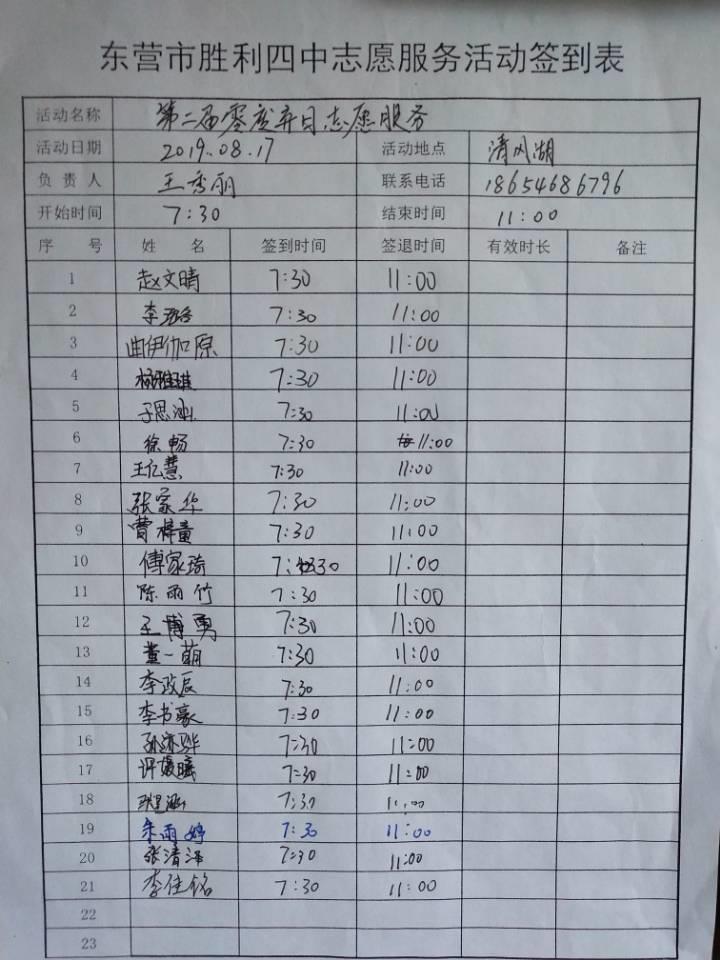 东营市胜利四中志愿服务活动签到表
活动名称 第二届零废弃日志愿服务
活动日期 2019.08.17 活动地点 清风湖
负责人 王秀丽 联系电话 18654686796
开始时间 7:30 结束时间 11:00
序号 姓名 签到时间 签退时间 有效时长 备注
1 赵文晴 7:30 11:00
2 李 7:30 11:00
3 曲伊伽原 7:30 11:00
4 7:30 11:00
5 于思冰 7:30 11:00
6 徐畅 7:30 11:00
7 王亿慧 7:30 11:00
8 张家华 7:30 11:00
9 曹梓童 7:30 11:00
10 傅家琦 7:30 11:00
11 陈雨竹 7:30 11:00
12 王博勇 7:30 11:00
13 董一萌 7:30 11:00
14 李政辰 7:30 11:00
15 李书豪 7:30 11:00
16 7:30 11:00
17 7:30 11:00
18 7:30 11:00
19 朱雨婷 7:30 11:00
20 张清泽 7:30 11:00
21 李佳铭 7:30 11:00
22
23